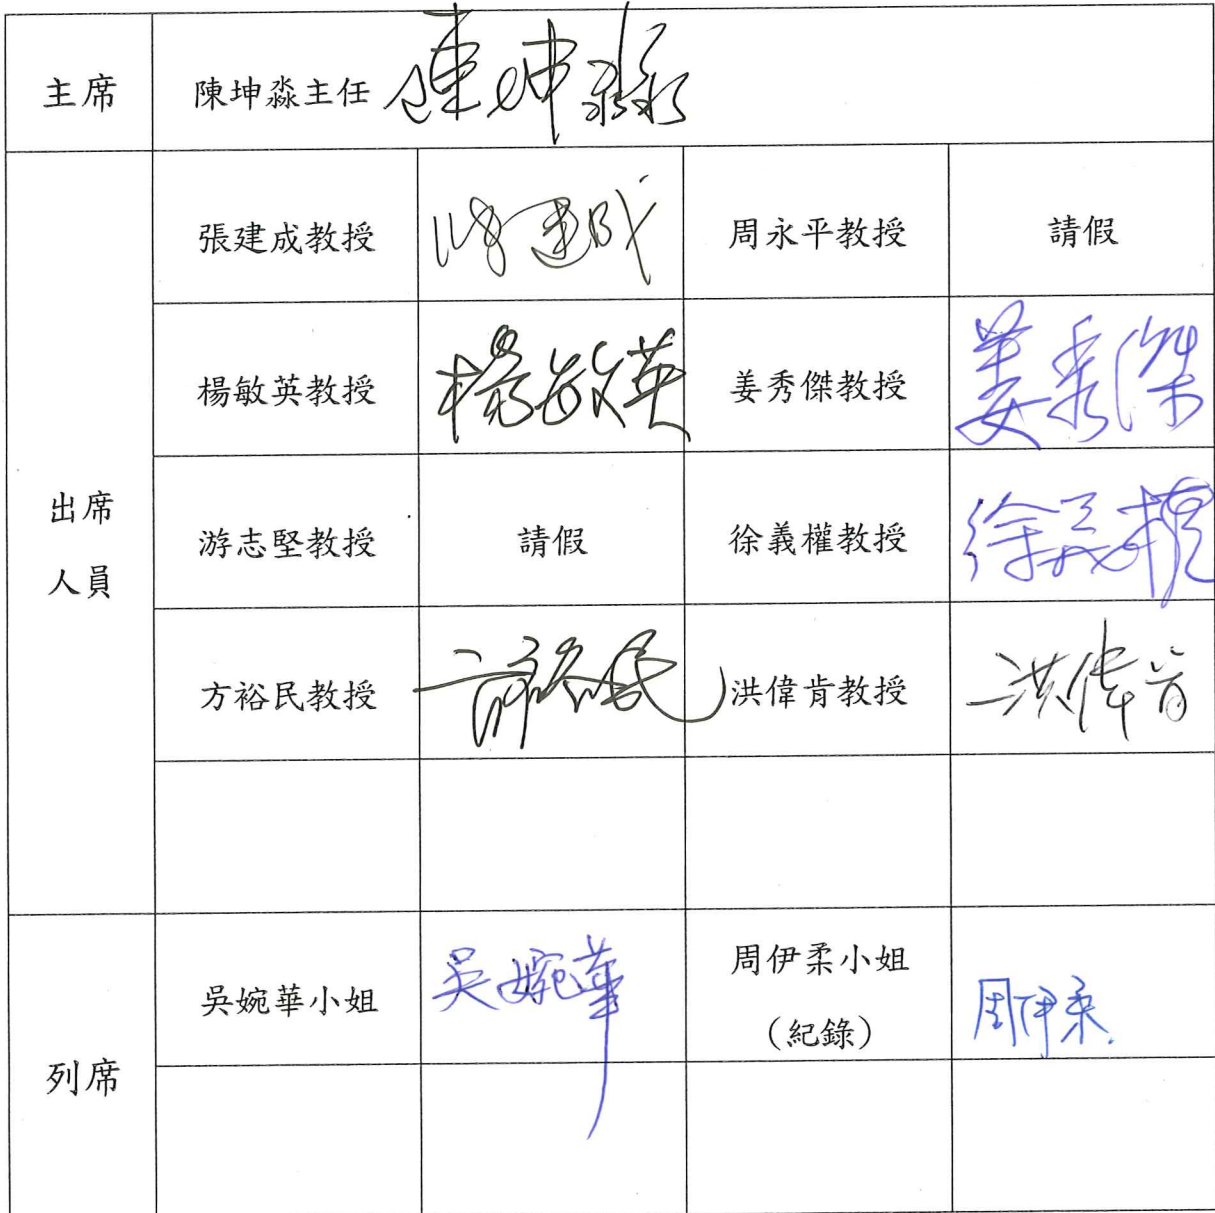 主席
陳坤淼主任 陳坤淼
出席
人員
張建成教授 張建成 周永平教授 請假
楊敏英教授 楊敏英 姜秀傑教授 姜秀傑
游志堅教授 請假 徐義權教授 徐義權
方裕民教授 方裕民 洪偉肯教授 洪偉肯
列席
吳婉華小姐 吳婉華 周伊柔小姐 周伊柔
（紀錄）